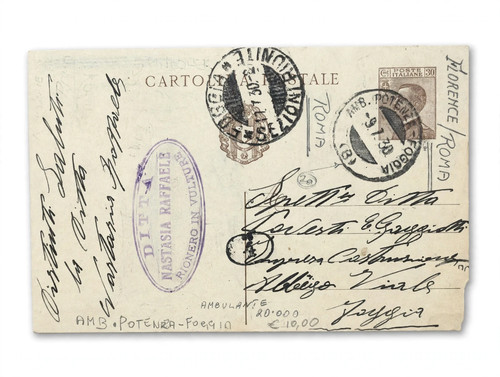 CARTOLINA POSTALE
POSTE ITALIANE
30
FOGGIA
SEZIONI RIUNITE
AMB. POTENZA-FOGGIA
9.1.30
(B)
ROMA
FLORENCE/ROMA
DITTA
NASTASIA RAFFAELE
RIONERO IN VULTURE
Distinti Saluti
la Ditta
Nastasia Raffaele
Spett. Ditta
Impresa Costruzioni
Foggia
AMBULANTE
AMB. POTENZA-FOGGIA
20.000
€ 10,00